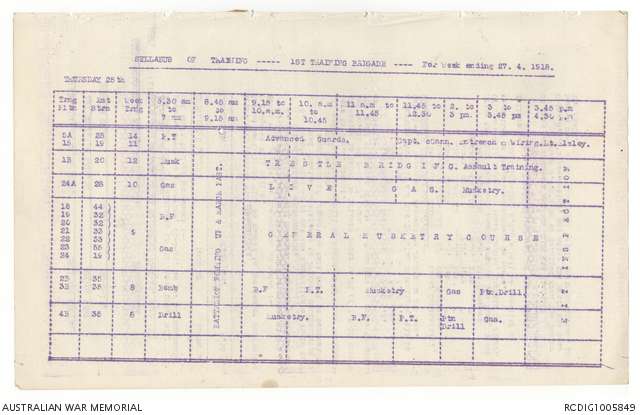 SYLLABUS OF TRAINING ----- 1ST TRAINING BRIGADE ---- For Week ending 27. 4. 1918.
THURSDAY 25th
Trng Pltn | Est Strn | Week Trng | 6.30 am to 7 am | 8.45 am to 9.15 am | 9.15 to 10.a.m. | 10. a.m to 10.45 | 11 a.m to 11.45 | 11.45 to 12.30 | 2. to 3 pm. | 3 to 3.45 pm | 3.45 p.m 4.30 p.m.
5A 25 14 P.T Advanced Guards.
15 19 11
1B 20 12 Musk T R E S T L E B R I D G I F G. Assault Training.
24A 28 10 Gas L I V E G A S. Musketry.
18 44 )
19 32 ) B.F
20 32 )
21 33 )
22 33 ) G E N E R A L M U S K E T R Y C O U R S E
23 55 ) Gas
24 19 )
BATTALION FORMING UP & MARCH PAST.
2B 35
3B 35 8 Bomb B.F P.T. Musketry Gas Ptn.Drill.
4B 35 6 Drill Musketry. B.F. P.T. Ptn Drill Gas.
AUSTRALIAN WAR MEMORIAL
RCDIG1005849